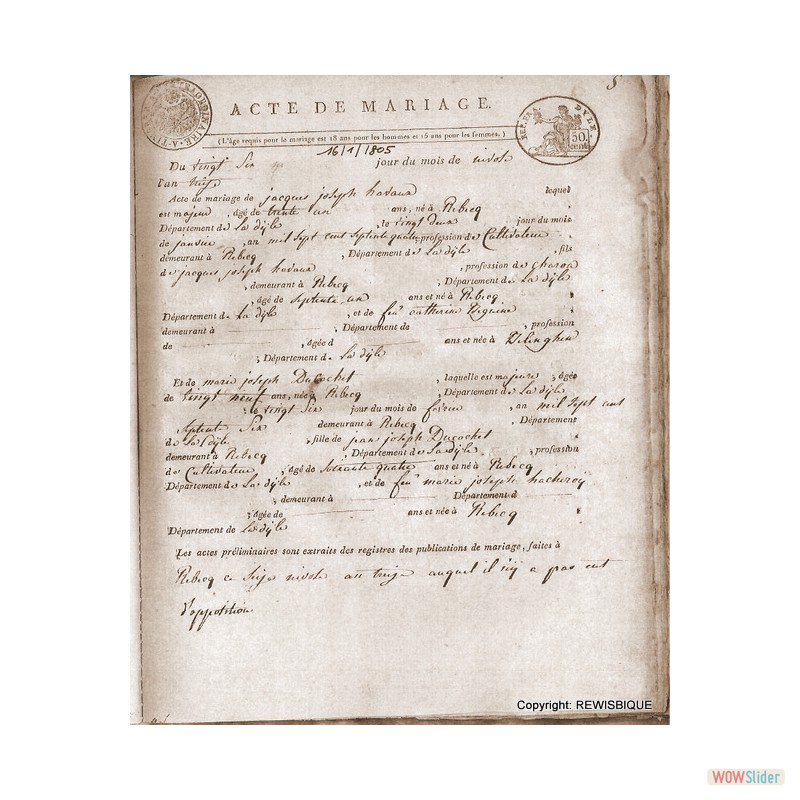 5
ACTE DE MARIAGE.
(L'âge requis pour le mariage est 18 ans pour les hommes et 15 ans pour les femmes.)
REP. FR. DYLE
50. cent
16/1/1805
Du vingt Six jour du mois de nivose
l'an treize
Acte de mariage de jacques joseph havaux lequel
est majeur, âgé de trente un ans, né à Rebecq,
Département de La dÿle, le vingt deux jour du mois
de janvier, an mil Sept cent Septente quatre profession de Cultivateur
demeurant à Rebecq, Département de La dÿle, fils
de jacques joseph havaux, profession de Charon
, demeurant à Rebecq, Département de La dÿle
, âgé de Septente un ans et né à Rebecq
Département de La dÿle, et de feu Catherine
demeurant à, Département de, profession
de, âgée d ans et née à
; Département d. La dÿle
Et de marie joseph Ducochet, laquelle est majeure, âgée
de vingt neuf ans, née à Rebecq, Département de La dÿle
, le vingt Six jour du mois de, an mil Sept cent
Septente Six demeurant à Rebecq, Département
de La dÿle, fille de jean joseph Ducochet
demeurant à Rebecq, Département de La dÿle, profession
de Cultivateur, âgé de Soixante quatre ans et né à Rebecq
Département de La dÿle, et de feu marie joseph
, demeurant à Département d
, âgée de ans et née à Rebecq
Département de La dÿle
Les actes préliminaires sont extraits des registres des publications de mariage, faites à
Rebecq ce Seize nivose an treize auquel il n'ÿ a pas eut
d'opposition
Copyright: REWISBIQUE
WOWSlider